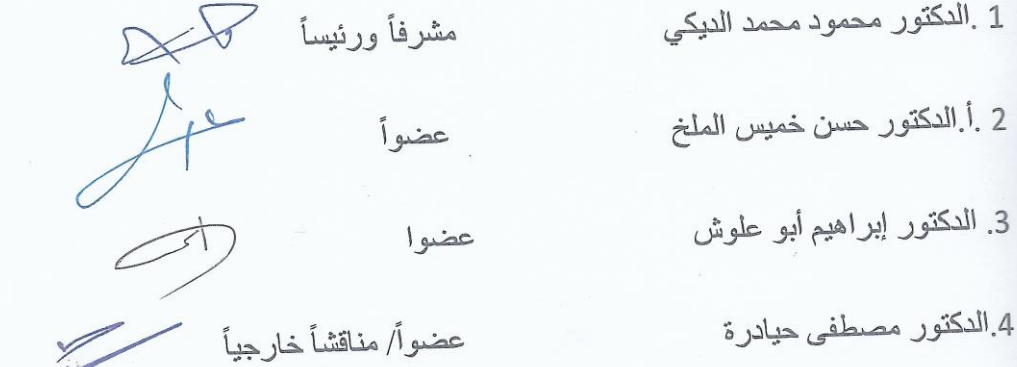 1 .الدكتور محمود محمد الديكي مشرفاً ورئيساً
2 .أ.الدكتور حسن خميس الملخ عضواً
3. الدكتور إبراهيم أبو علوش عضوا
4.الدكتور مصطفى حيادرة عضواً/ مناقشاً خارجياً